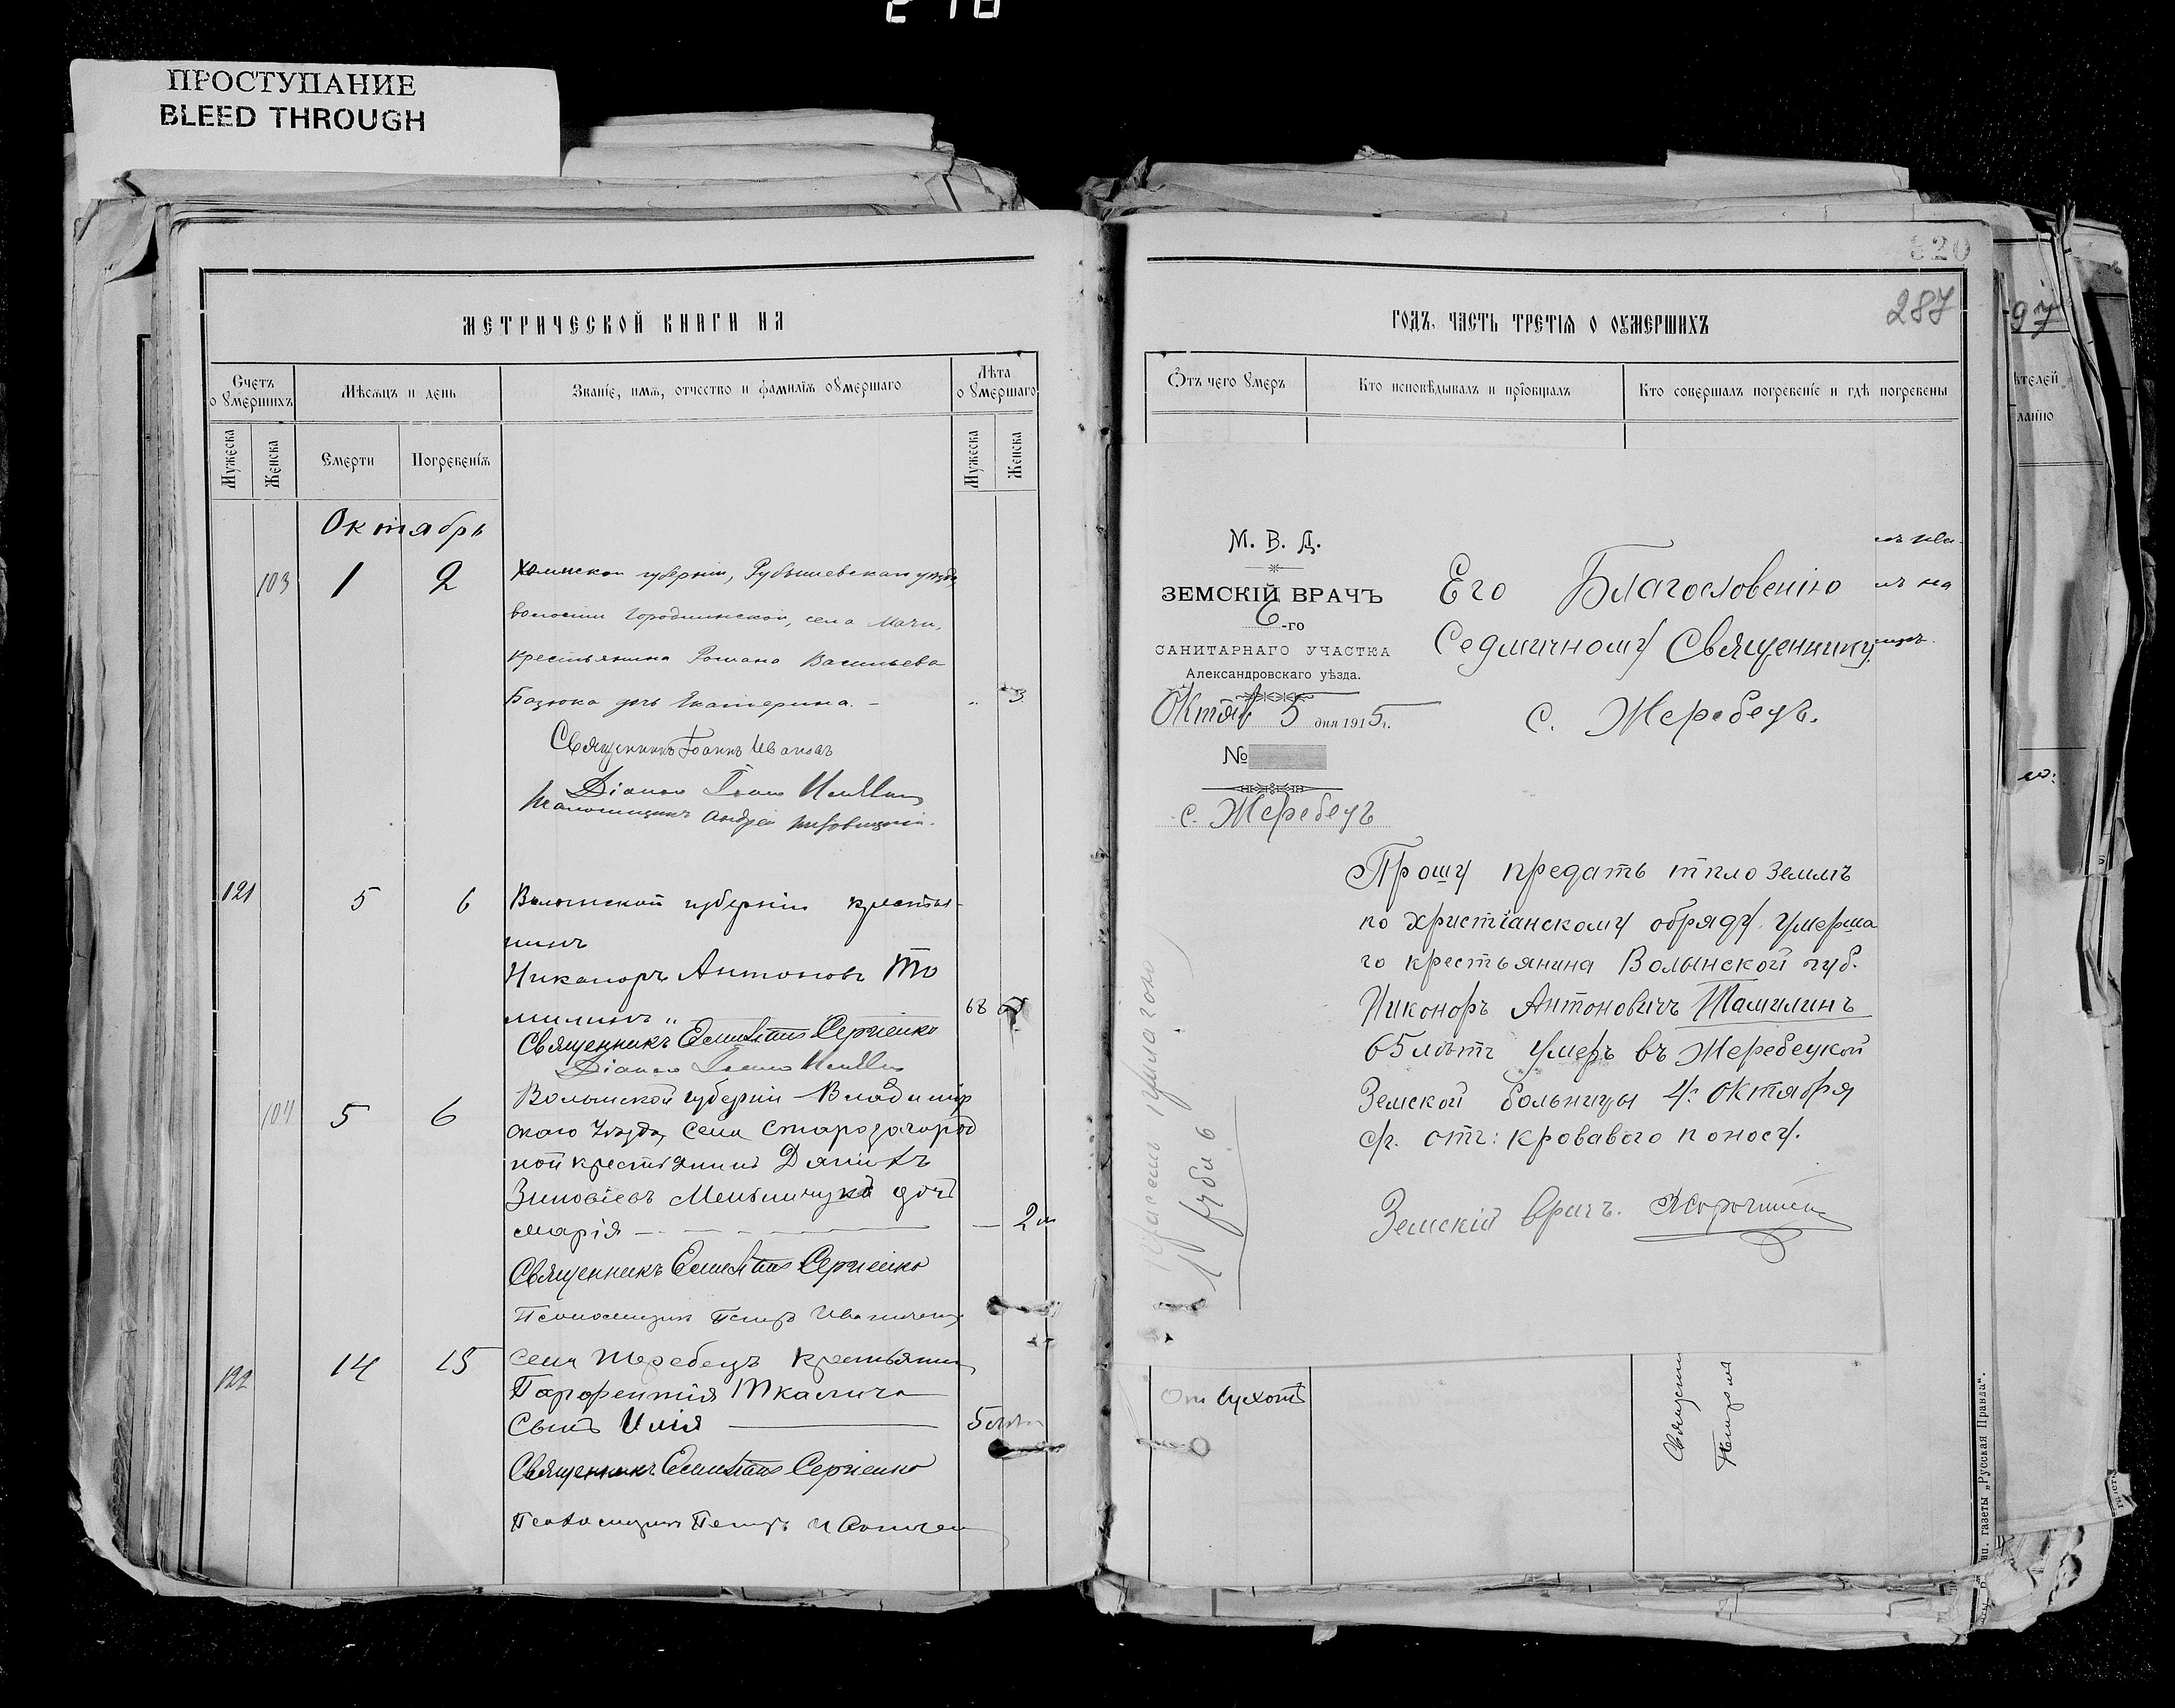 ПРОСТУПАНИЕ
BLEED THROUGH
МЕТРИЧЕСКОЙ КНИГИ НА
Счетъ оумершихъ
Мѣсяцъ и день
Званіе, имя, отчество и фамилія оумершаго
Лѣта оумершаго
Мужеска
Женска
Смерти
Погребенія
Мужеска
Женска
Октябрь
103 1 2 Холмской губерніи, Грубешевскаго уѣзда
волости Городинской, села
крестьянина Романа Васильева
дочь Екатерина. - „ 3
Священникъ Іоаннъ Ивановъ
Діаконъ
Псаломщикъ Андрей
121 5 6 Волынской губерніи крестья-
нинъ
Никаноръ Антоновъ То
милинъ „ 68
Священникъ Емиліанъ Сергіенко
Діаконъ
104 5 6 Волынской губерніи Владимір
скаго уѣзда, села Старозагород
ной крестьянина
Зиновіевъ Мельничука дочь
Марія — 2 м
Священникъ Емиліанъ Сергіенко
Псаломщикъ Петръ
122 14 15 Села Жеребецъ крестьянин
Парфентія Ткалича
Сынъ Илія 5
Священникъ Емиліанъ Сергіенко
Псаломщикъ Петръ
320
287
ГОДЪ, ЧАСТЬ ТРЕТІЯ О ОУМЕРШИХЪ
Отъ чего умеръ
Кто исповѣдывалъ и пріобщалъ
Кто совершалъ погребеніе и гдѣ погребены
М. В. Д.
ЗЕМСКІЙ ВРАЧЪ
6-го
САНИТАРНАГО УЧАСТКА
Александровскаго уѣзда.
Октяб 5 дня 1915 г.
№
с. Жеребецъ
Его Благословенію
Седмичному Священнику
с. Жеребецъ.
Прошу предать тѣло землѣ
по христіанскому обряду умерша
го крестьянина Волынской губ.
Никоноръ Антоновичъ Тамилинъ
65 лѣтъ умеръ въ Жеребецкой
Земской больницы 4: Октября
с/г. отъ: кроваваго поносу.
Земскій врачъ.
От сухотъ
газеты „Русская Правда".